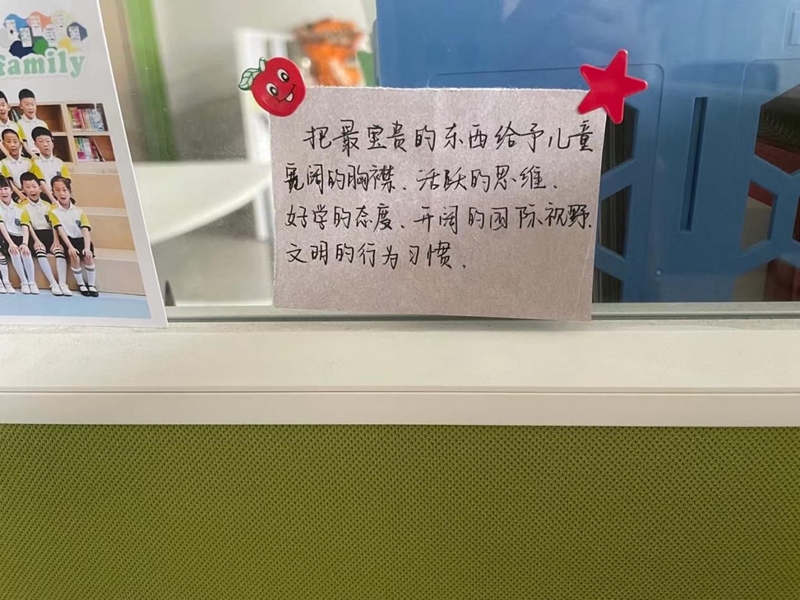 family
把最宝贵的东西给予儿童
宽阔的胸襟、活跃的思维、
好学的态度、开阔的国际视野、
文明的行为习惯、